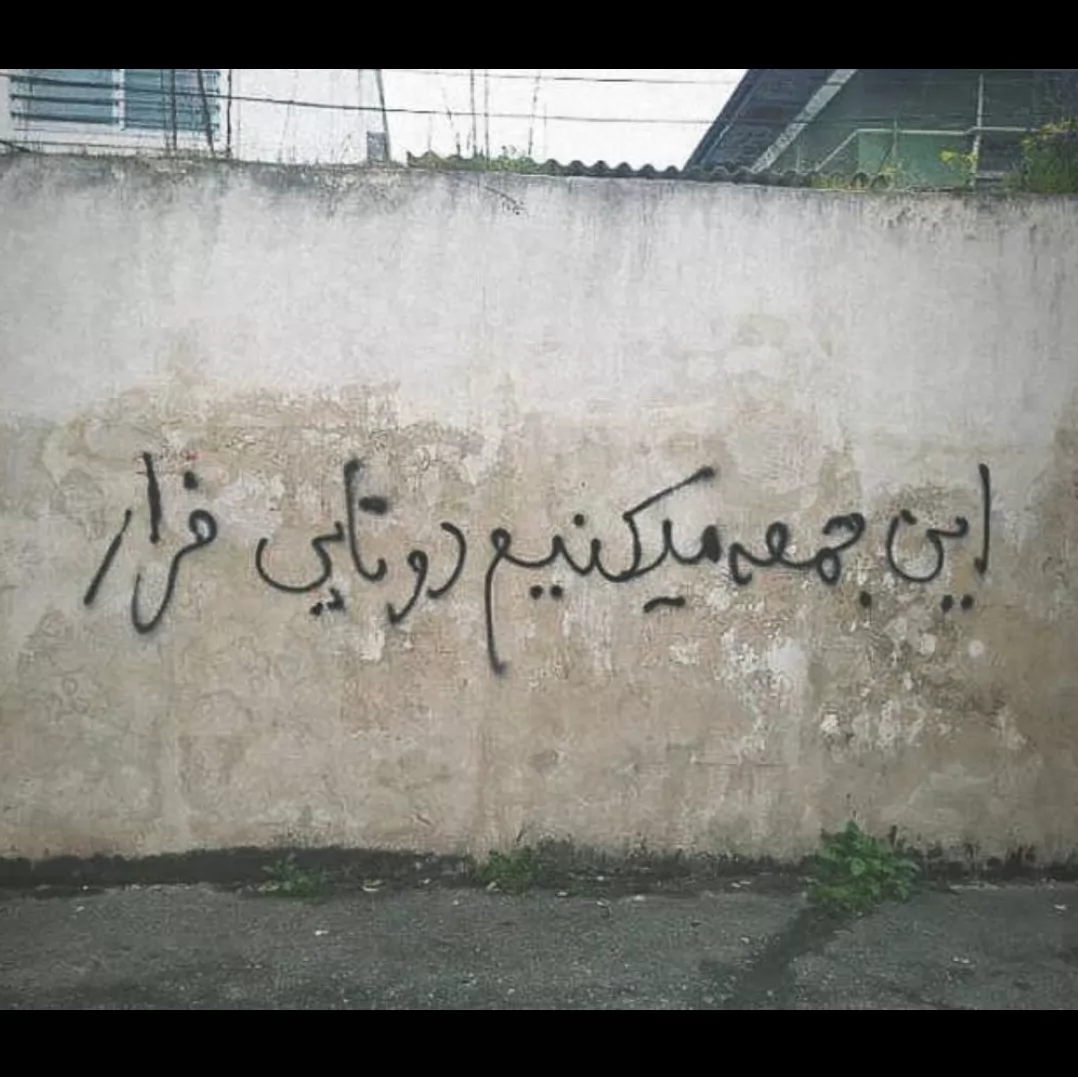 این جمعه میکنیم دوتایی فرار